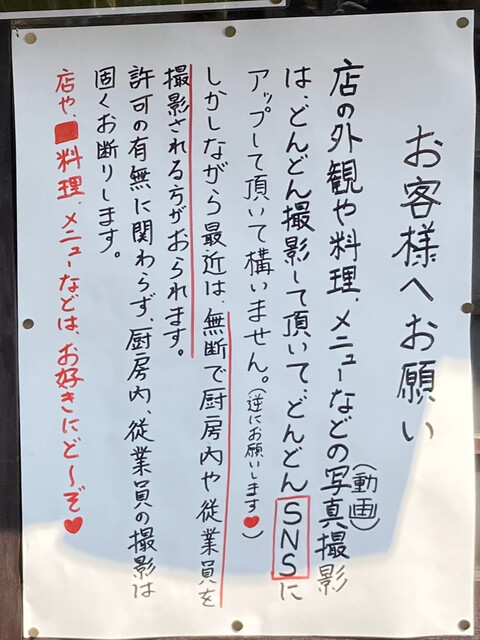 お客様へお願い
店の外観や料理、メニューなどの写真(動画)撮影
は、どんどん撮影して頂いて、どんどんSNSに
アップして頂いて構いません。(逆にお願いします♥)
しかしながら最近は、無断で厨房内や従業員を
撮影される方がおられます。
許可の有無に関わらず、厨房内、従業員の撮影は
固くお断りします。
店や、料理、メニューなどは、お好きにど〜ぞ♥